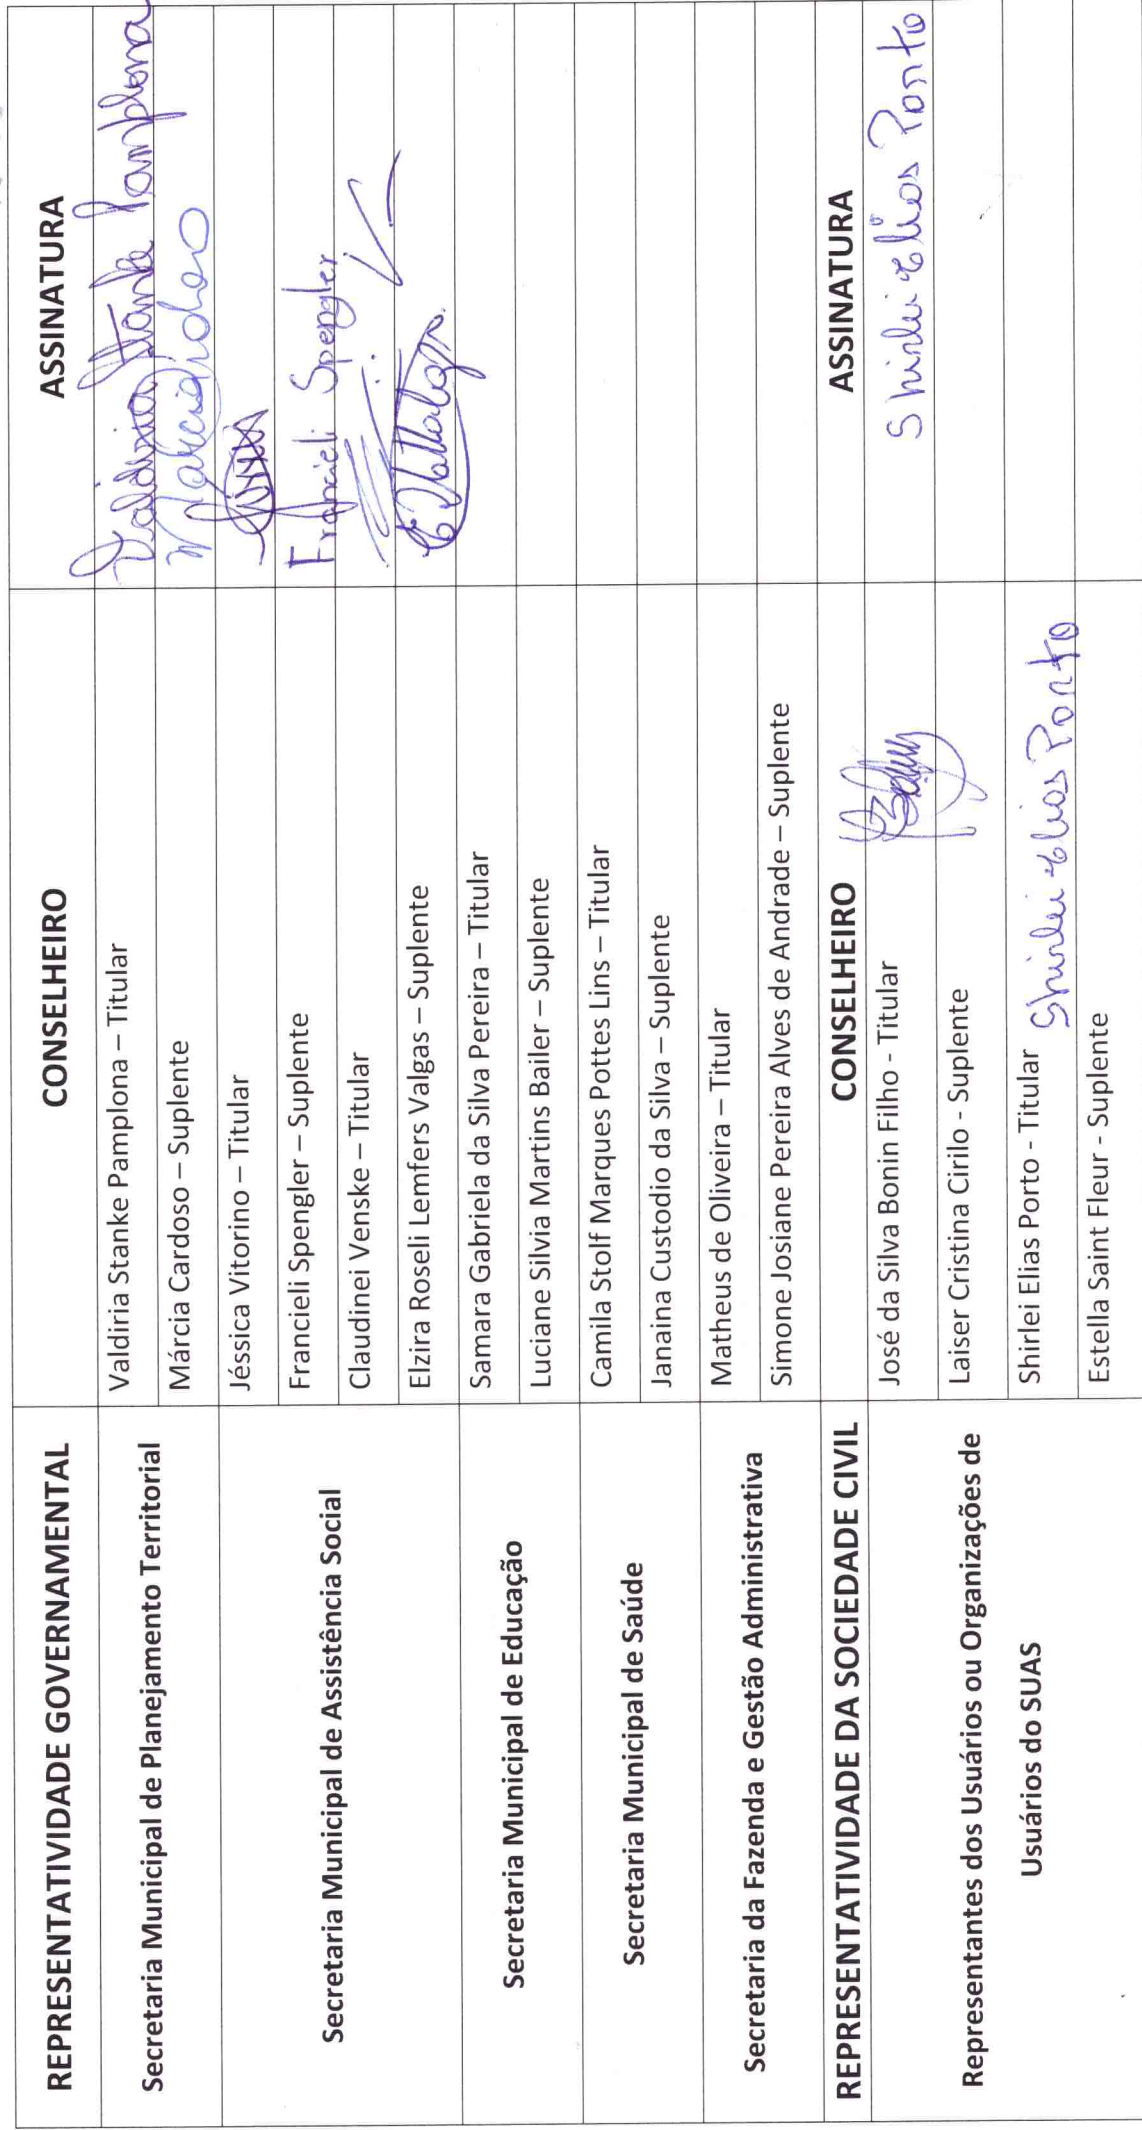 REPRESENTATIVIDADE GOVERNAMENTAL CONSELHEIRO ASSINATURA
Secretaria Municipal de Planejamento Territorial
Valdiria Stanke Pamplona – Titular Valdiria Stanke Pamplona
Márcia Cardoso – Suplente
Secretaria Municipal de Assistência Social
Jéssica Vitorino – Titular
Francieli Spengler – Suplente Francieli Spengler
Claudinei Venske – Titular
Elzira Roseli Lemfers Valgas – Suplente
Secretaria Municipal de Educação
Samara Gabriela da Silva Pereira – Titular
Luciane Silvia Martins Bailer – Suplente
Secretaria Municipal de Saúde
Camila Stolf Marques Pottes Lins – Titular
Janaina Custodio da Silva – Suplente
Secretaria da Fazenda e Gestão Administrativa
Matheus de Oliveira – Titular
Simone Josiane Pereira Alves de Andrade – Suplente
REPRESENTATIVIDADE DA SOCIEDADE CIVIL CONSELHEIRO ASSINATURA
Representantes dos Usuários ou Organizações de
Usuários do SUAS
José da Silva Bonin Filho - Titular Shirlei Elias Porto
Laiser Cristina Cirilo - Suplente
Shirlei Elias Porto - Titular Shirlei Elias Porto
Estella Saint Fleur - Suplente